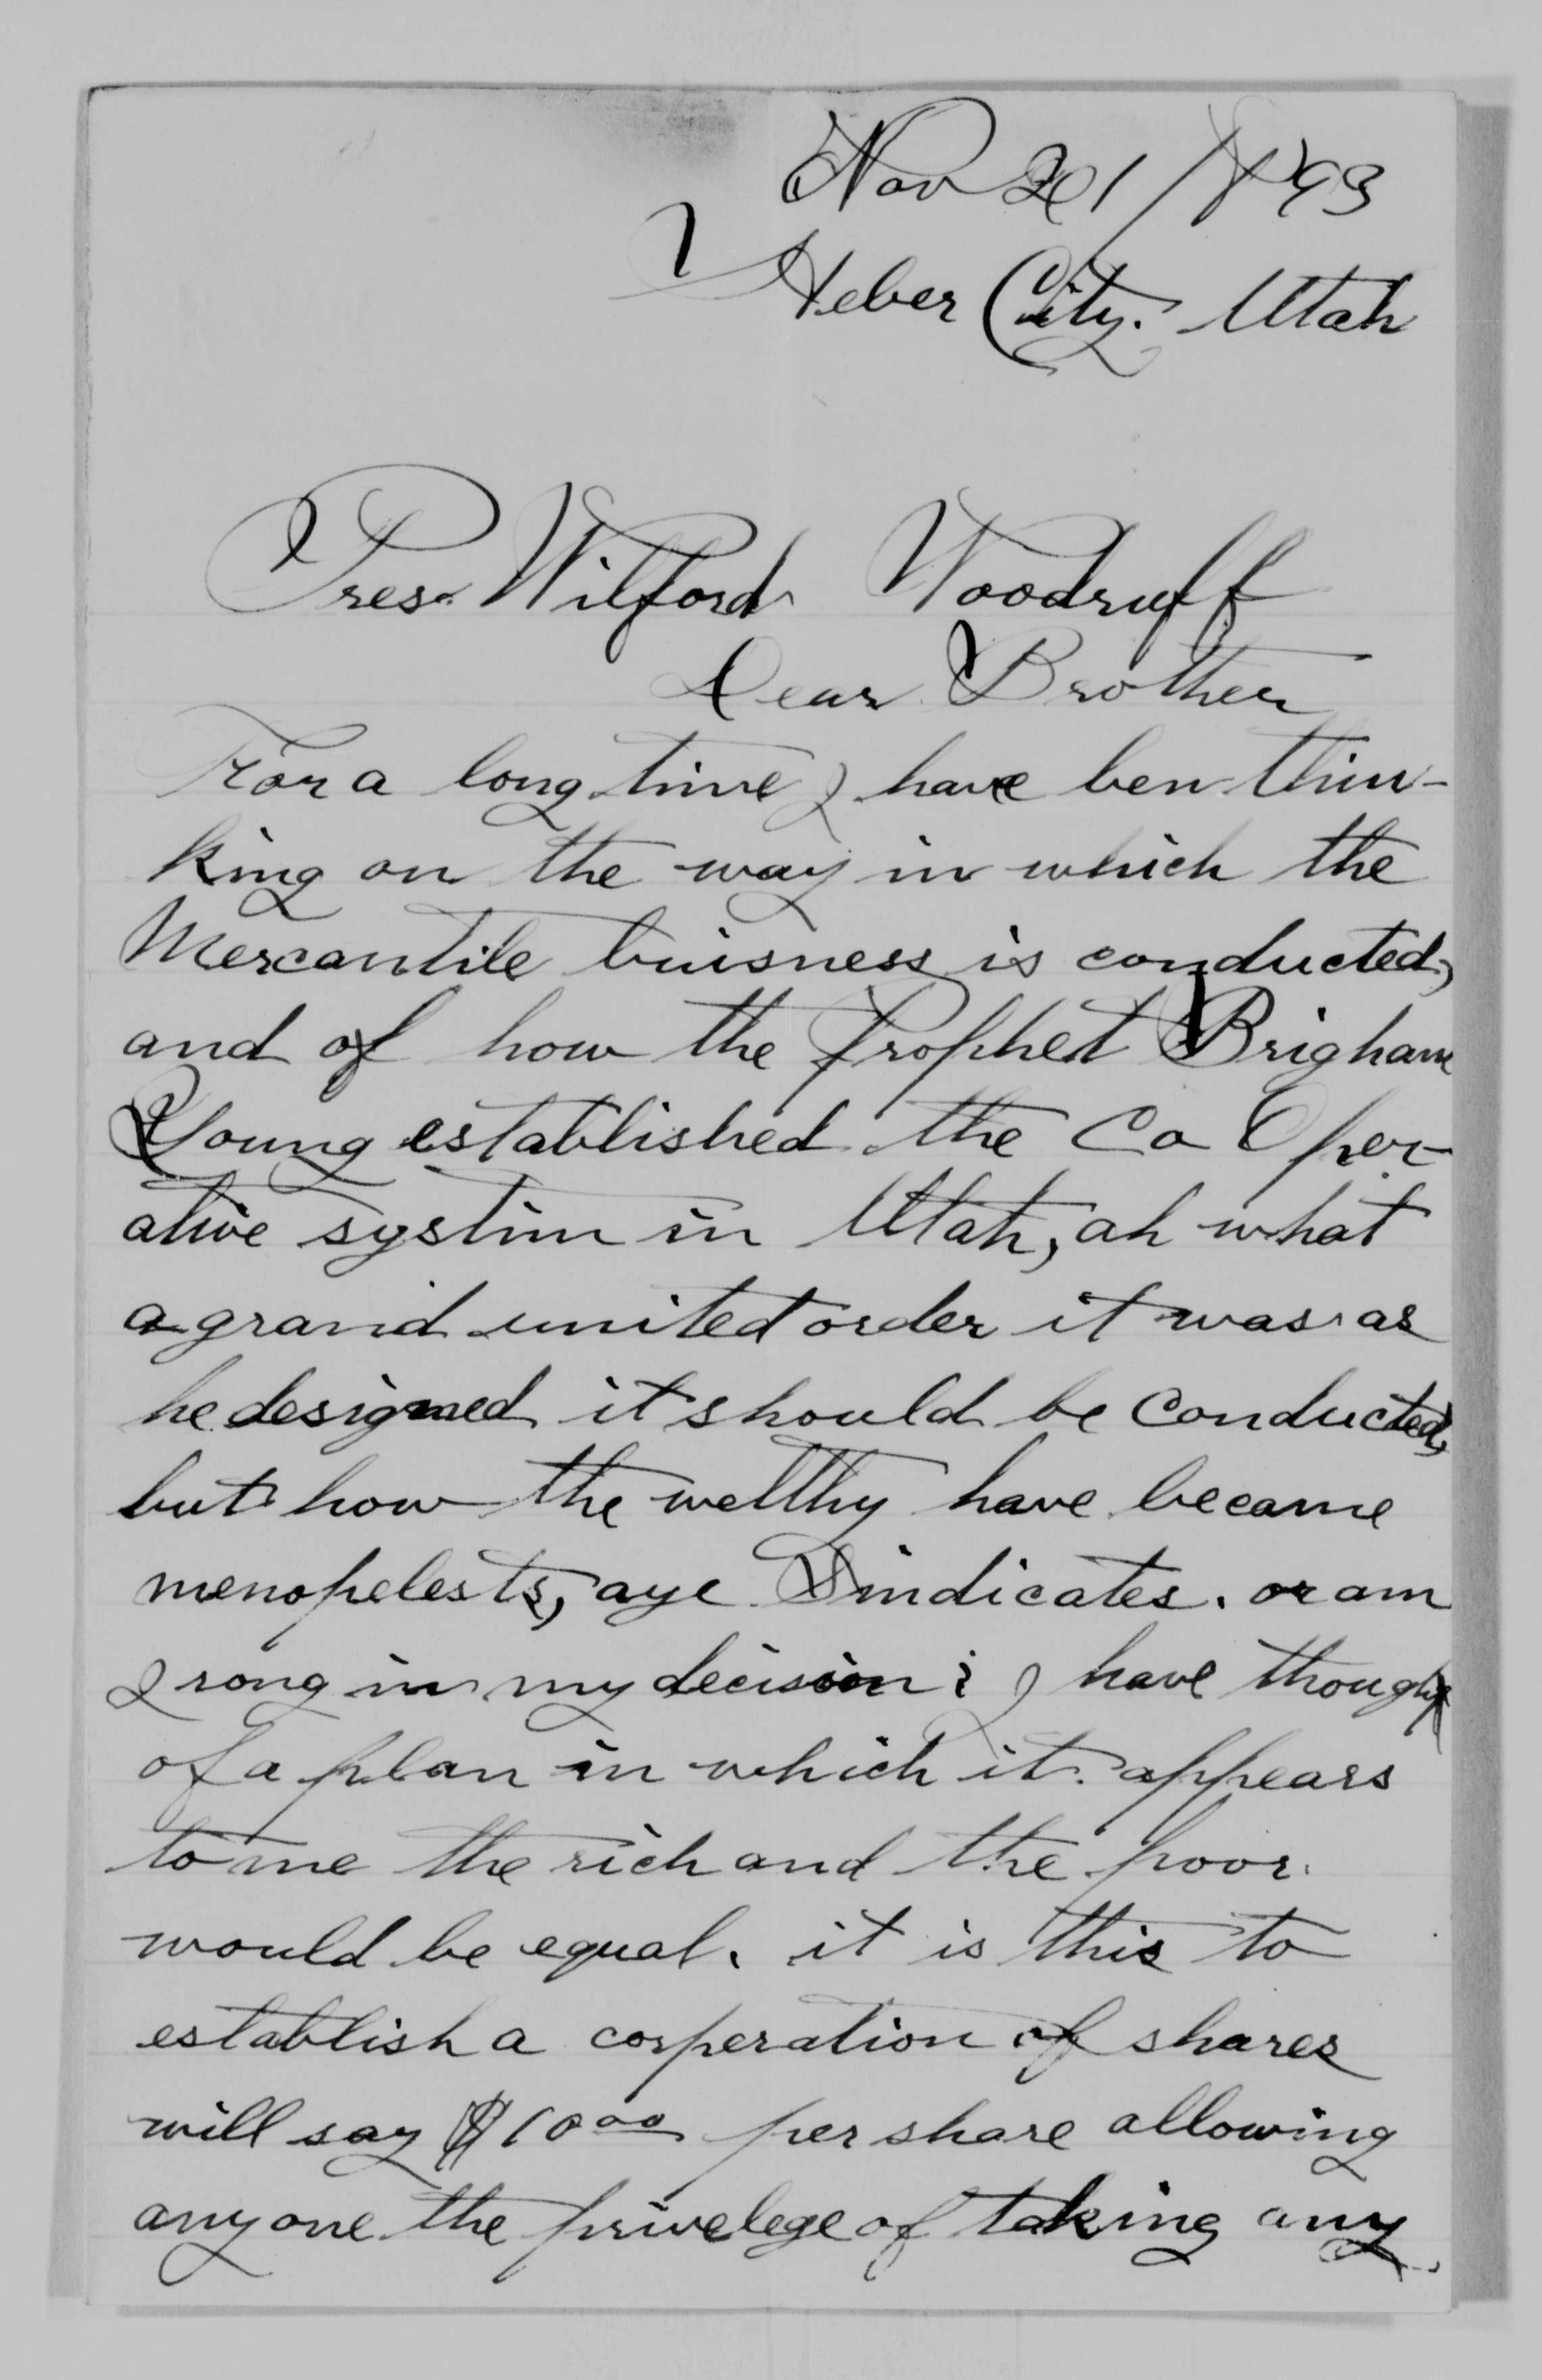 Nov 21 / 1893
Heber City. Utah
Pres. Wilford Woodruff
Dear Brother
For a long time I have ben thin-
king on the way in which the
Mercantile buisness is conducted,
and of how the Prophet Brigham
Young established the Co Oper-
ative systim in Utah, ah what
a grand united order it was as
he designed it should be conducted,
but how the welthy have became
menopelests, aye Sindicates. or am
I rong in my decision; I have thought
of a plan in which it appears
to me the rich and the poor
would be equal. it is this to
establish a corperation of shares
will say $10 00 per share allowing
any one the privelege of taking any